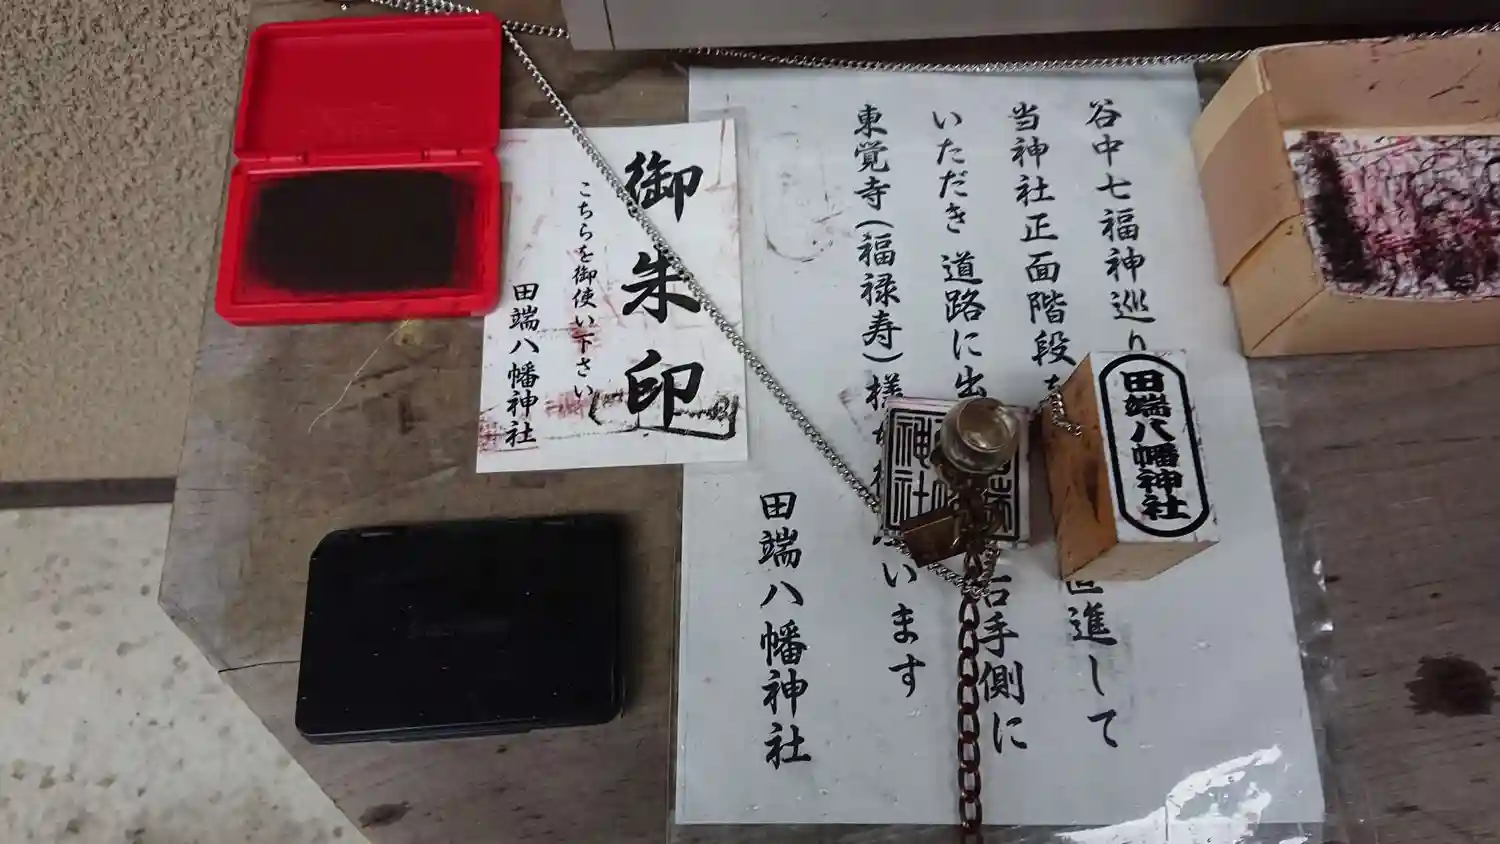 谷中七福神巡り
当神社正面階段を 直進して
いただき 道路に出 右手側に
東覚寺(福禄寿)様 います
田端八幡神社
御朱印
こちらを御使い下さい
田端八幡神社
田端八幡神社
神社